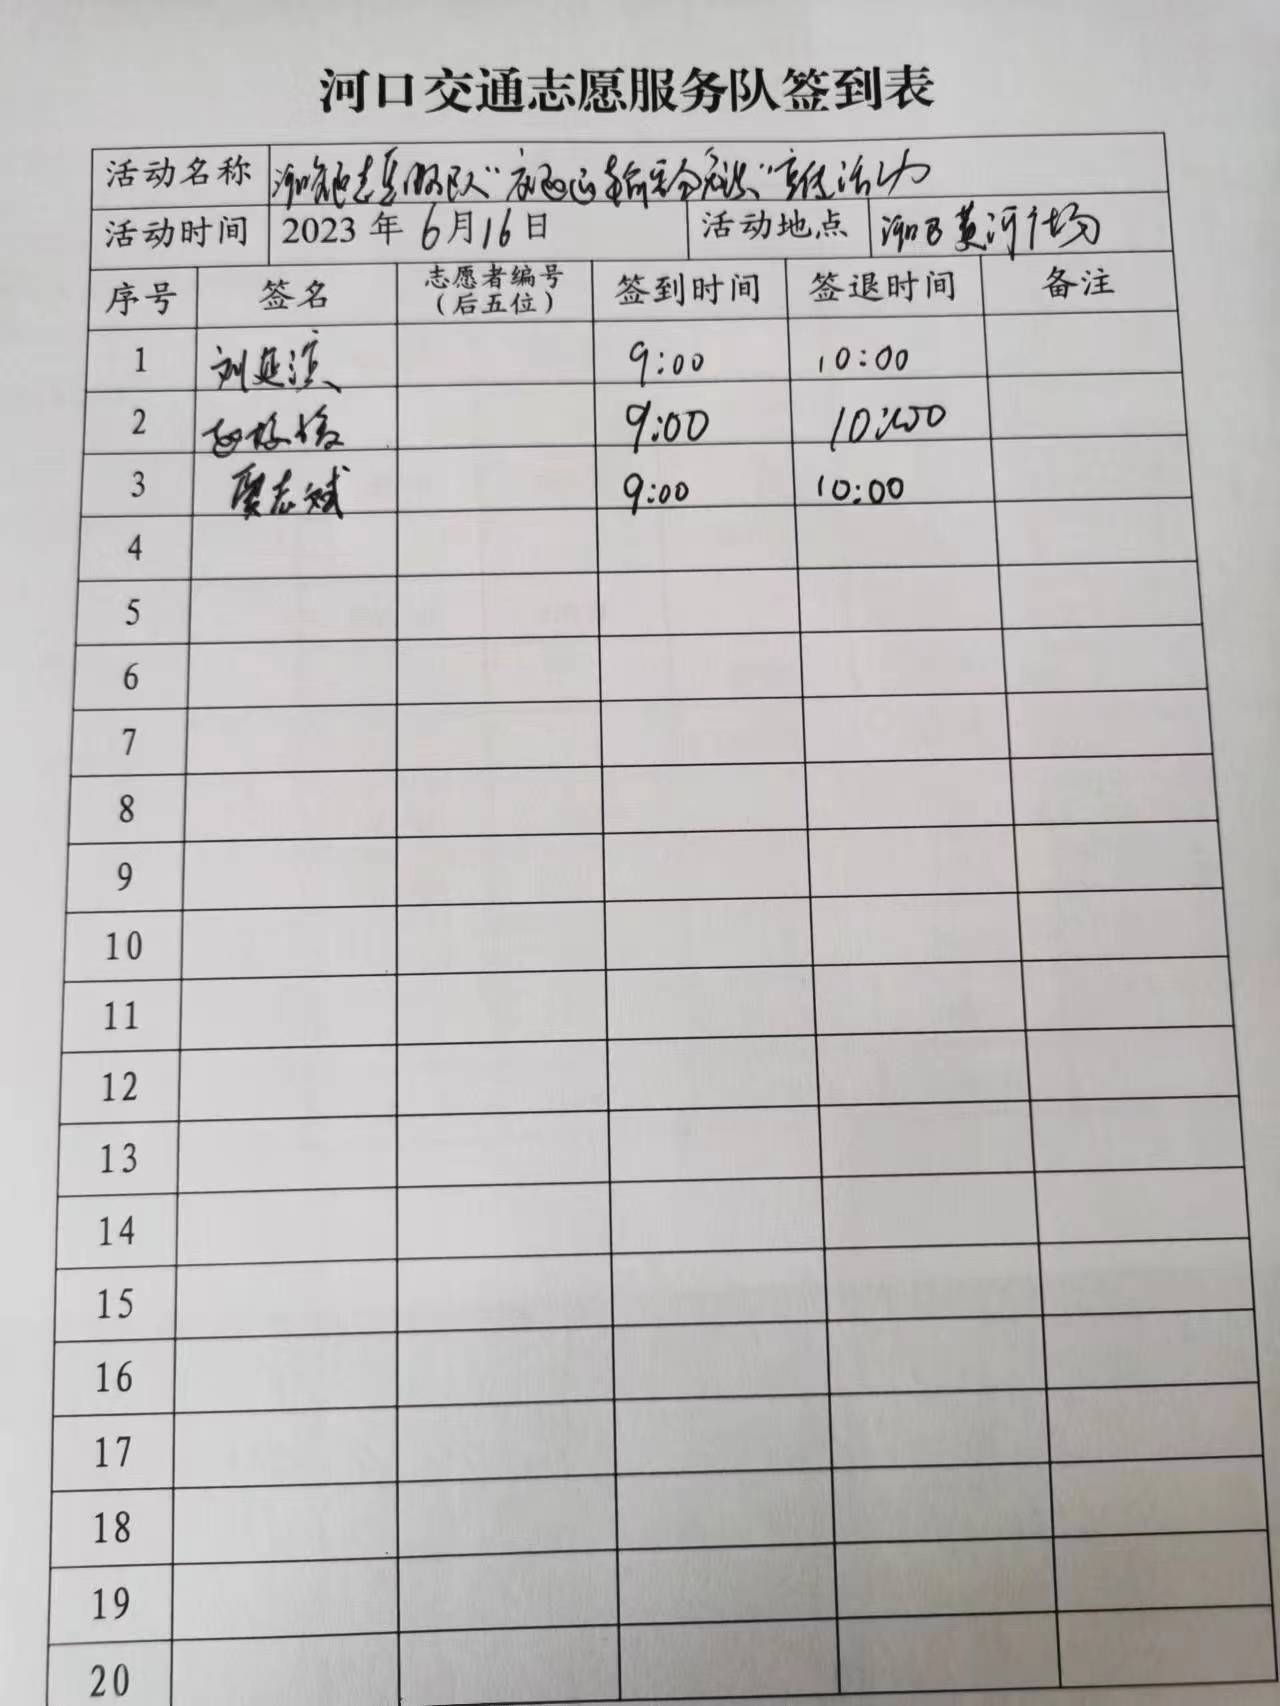 河口交通志愿服务队签到表
活动名称 志愿服务队“道路运输安全 宣传活动
活动时间 2023年6月16日 活动地点 河口黄河广场
序号 签名 志愿者编号（后五位） 签到时间 签退时间 备注
1 刘延滨 9:00 10:00
2 9:00 10:00
3 贾志斌 9:00 10:00
4
5
6
7
8
9
10
11
12
13
14
15
16
17
18
19
20